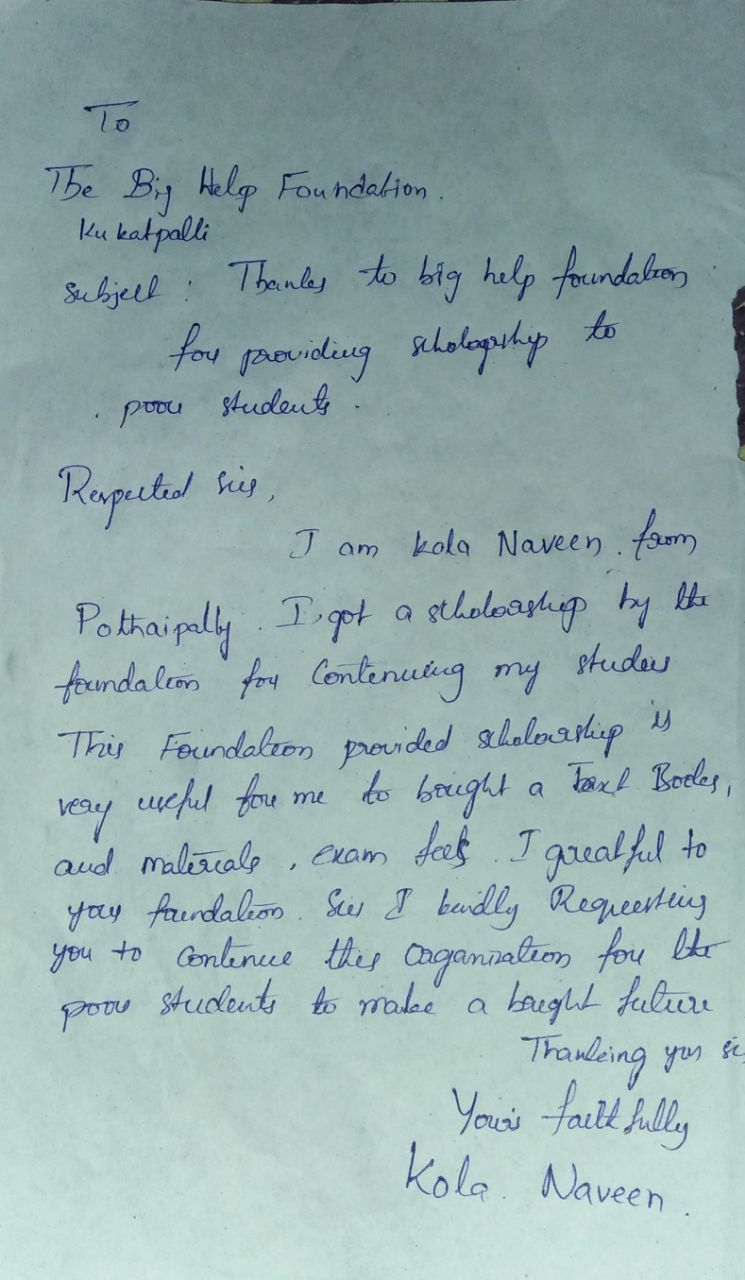 To
The Big Help Foundation.
Kukatpalli
subject : Thanks to big help foundation
for providing schologship to
poor students.
Respected sir,
I am kola Naveen. from
Pothaipally. I got a scholoarship by the
foundation for Continuing my studies
This Foundation provided scholoarship is
very useful for me to bought a Text Books,
and materials, exam fees. I greatful to
your foundation. Sir I kindly Requesting
you to continue this Oaganization for the
poor students to make a bright future
Thanking you si
Your's faithfully
Kola. Naveen.